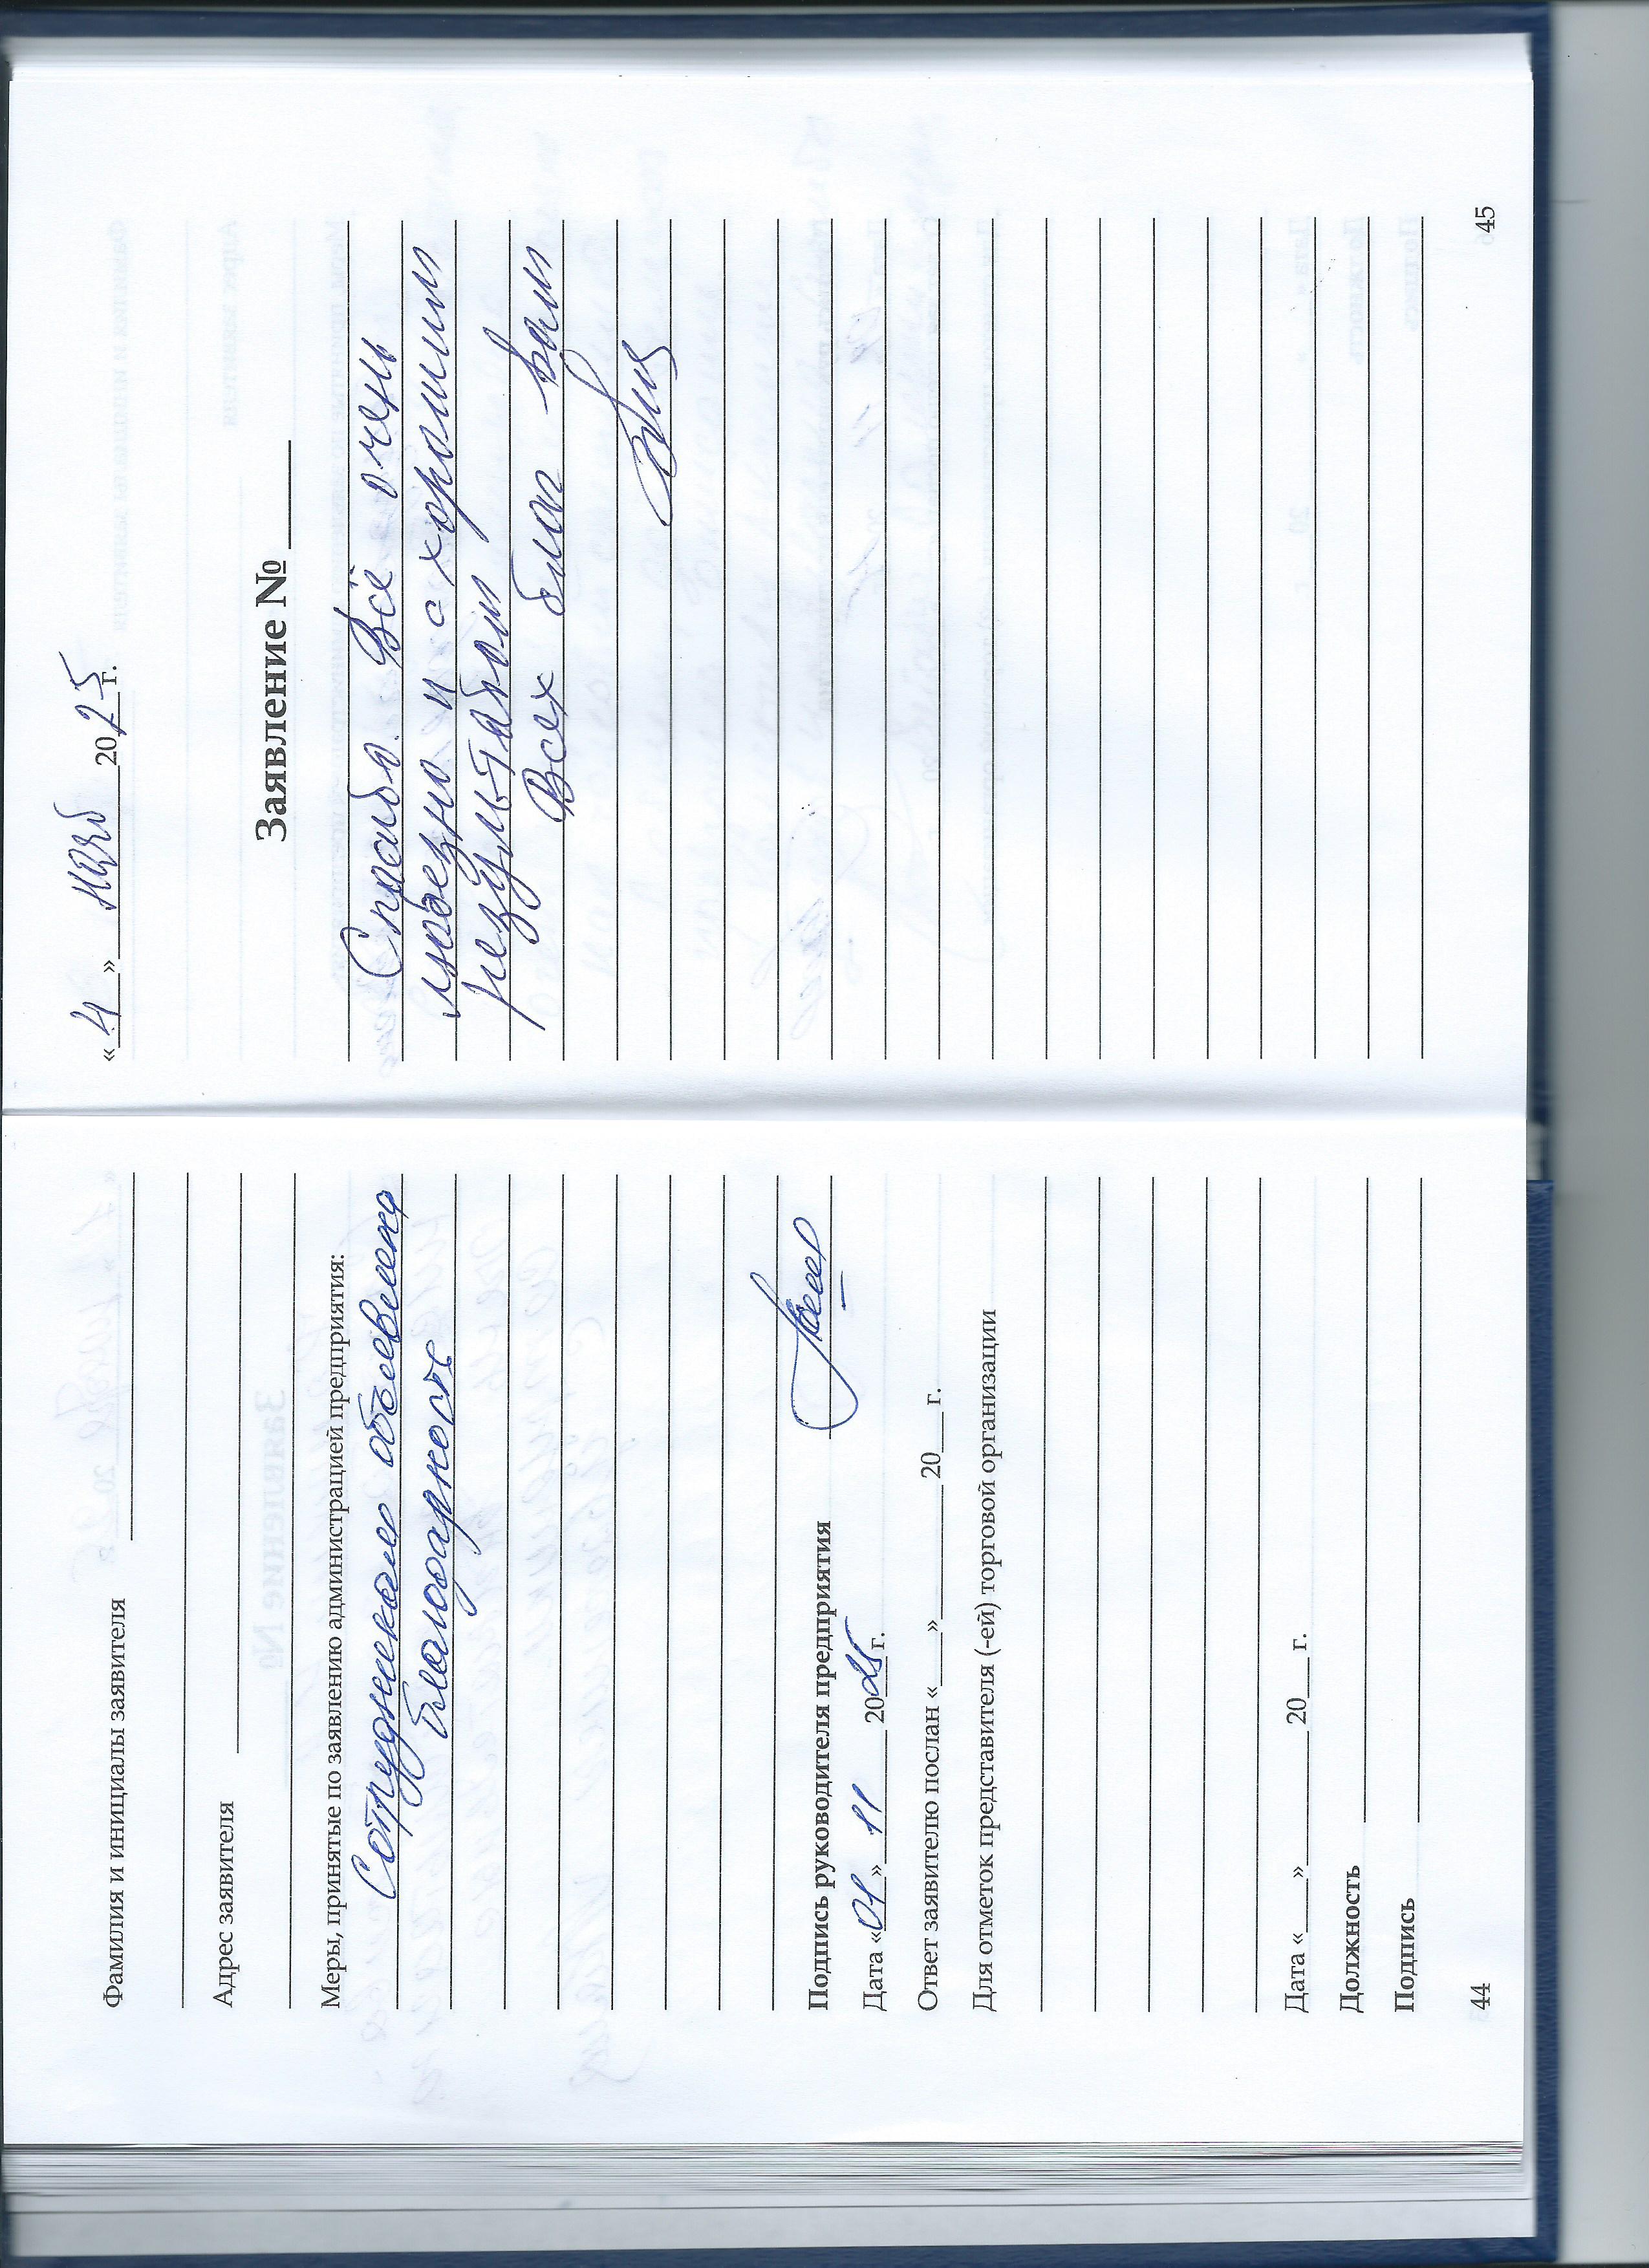 Фамилия и инициалы заявителя
Адрес заявителя
Меры, принятые по заявлению администрацией предприятия:
Сотрудникам объявлена
благодарность
Подпись руководителя предприятия
Дата «01» 11 2025 г.
Ответ заявителю послан «___»__________20___г.
Для отметок представителя (-ей) торговой организации
Дата «___»__________20___г.
Должность
Подпись
44
«4» нояб 2025 г.
Заявление №
Спасибо. Всё очень
и с хорошим
результатом
Всех благ вам
45